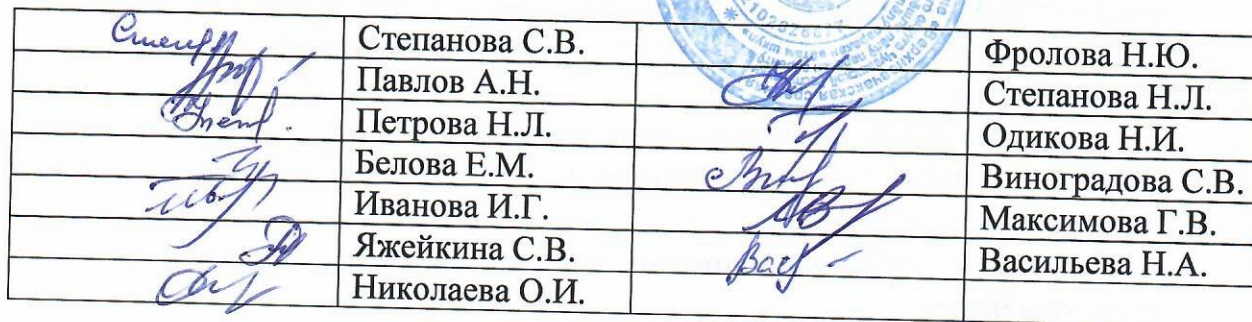 Степанова С.В. Фролова Н.Ю.
Павлов А.Н. Степанова Н.Л.
Петрова Н.Л. Одикова Н.И.
Белова Е.М. Виноградова С.В.
Иванова И.Г. Максимова Г.В.
Яжейкина С.В. Васильева Н.А.
Николаева О.И.